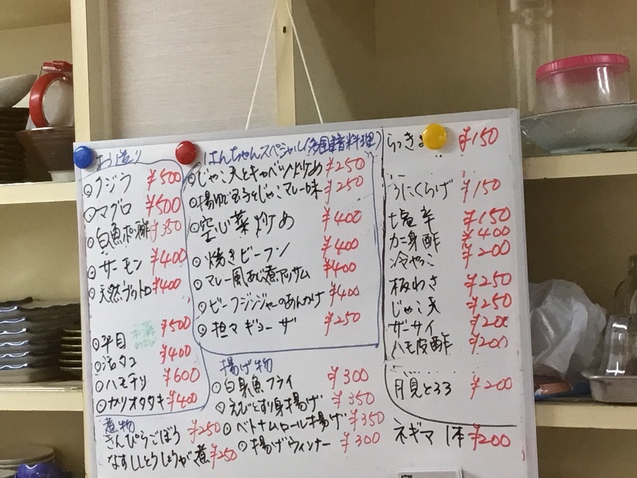 お造り
○クジラ ¥500
○マグロ ¥500
○白魚ポン酢 ¥350
○サーモン ¥400
○天然ブリトロ ¥400
○平目 ¥500
○活タコ ¥400
○ハモチリ ¥600
○カツオタタキ ¥400
煮物
きんぴらごぼう ¥250
なすししとうしょうが煮 ¥250
はんちゃんスペシャル(多国籍料理)
○じゃこ天とキャベツ炒め ¥250
○揚肌玉子とじゃこマレー味 ¥250
○空心菜炒め ¥400
○焼きビーフン ¥400
○マレー風あじ煮アッサム ¥400
○ビーフジンジャーあんかけ ¥400
○担々ギョーザ ¥250
揚げ物
○白身魚フライ ¥300
○えびとすり身揚げ ¥350
○ベトナムロール揚げ ¥350
○揚げウィンナー ¥300
らっきょ ¥150
うにくらげ ¥150
塩辛 ¥150
カニ身酢 ¥400
冷やっこ ¥200
板わさ ¥250
じゃこ天 ¥250
ザーサイ ¥200
ハモ皮酢 ¥200
月見とろろ ¥200
ネギマ 1本 ¥200